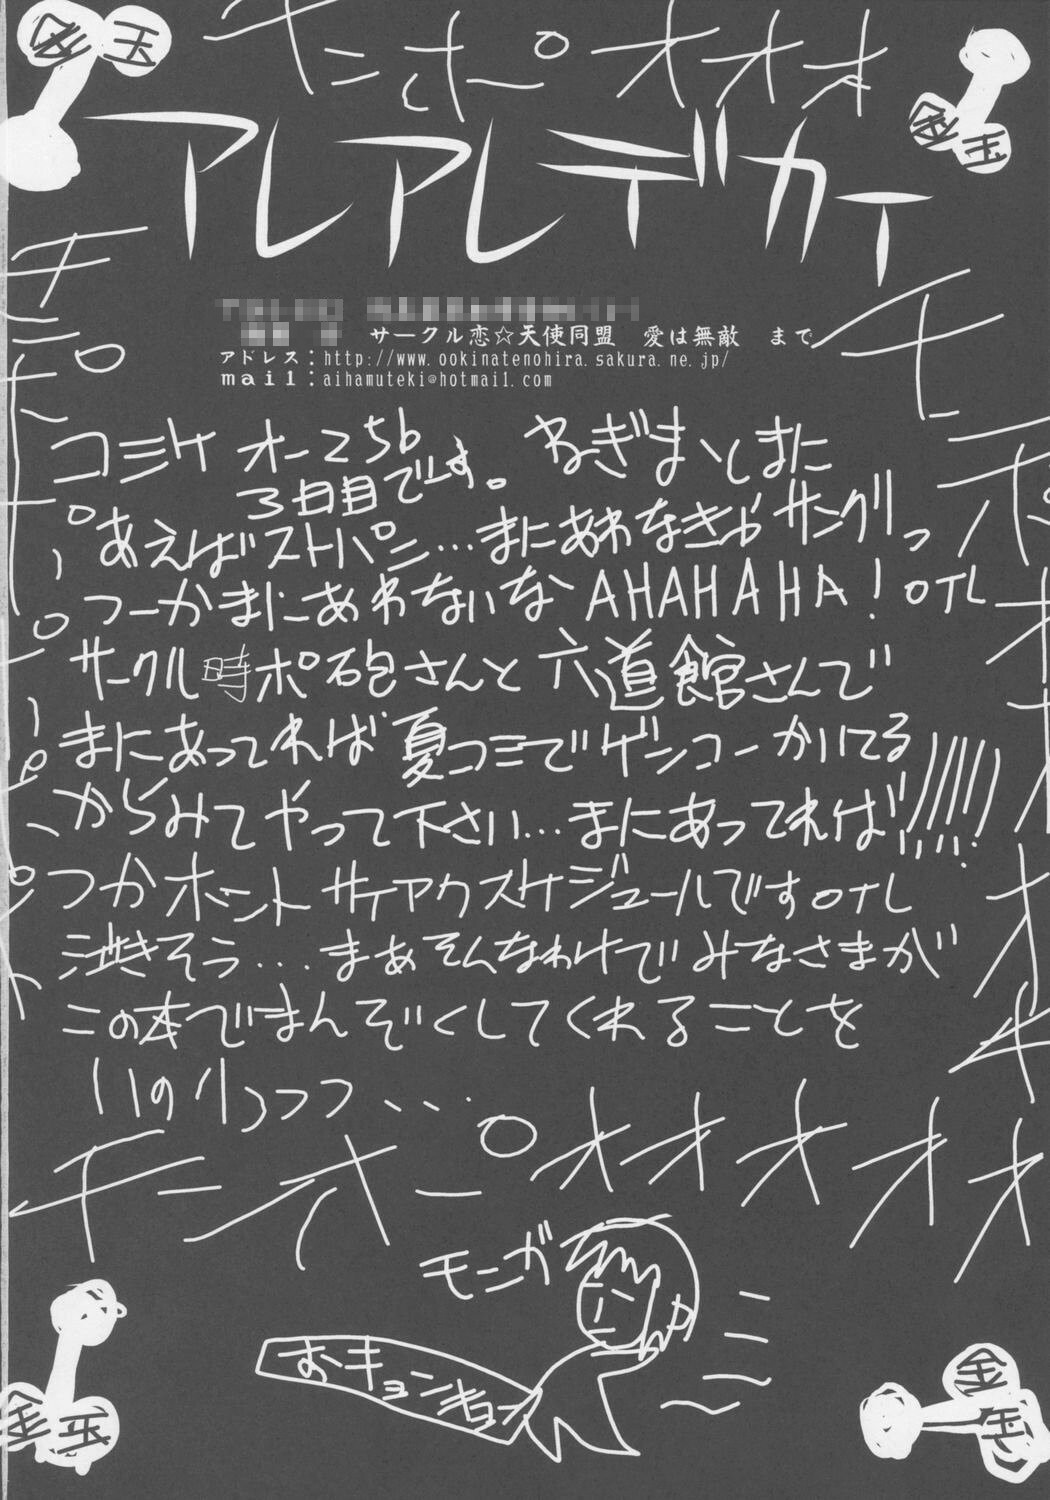 チンポオオオ
アレアレデカイ
サークル恋☆天使同盟 愛は無敵 まで
アドレス:http://www.ookinatenohira.sakura.ne.jp/
mail:aihamuteki@hotmail.com
コミケ オー25b
3日目でーす。 ねぎま、しまに
あえばストパン…まにあわなきゃサングリっ
つーかまにあわないな AHAHAHA! OTL
サークル時ポ砲さんと六道館さんで
まにあってれば夏コミでゲンコーかいてる
からみてやって下さい…まにあってれば!!!!!
つかホント サイアクスケジュールですOTL
泣きそう… まあそんなわけでみなさまが
この本でまんぞくしてくれることを
いのりっっっ…
チンポオオオオオ
モンガ
おキョンキョン
金玉
金玉
金玉
金玉